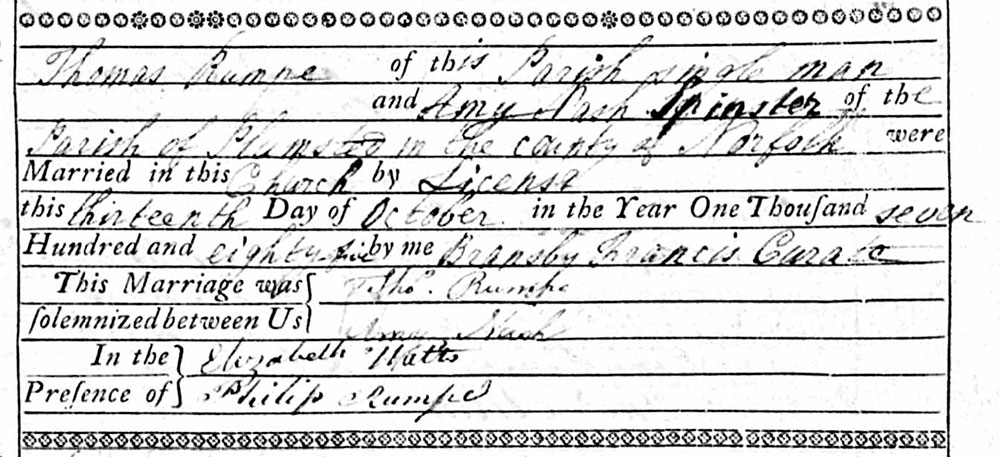 Thomas Rumpe of this Parish single man
and Amy Nash Spinster of the
Parish of Plumsted in the county of Norfolk were
Married in this Church by License
this thirteenth Day of October in the Year One Thouſand seven
Hundred and eighty by me Bransby Francis Curate
This Marriage was Thoˢ. Rumpe
ſolemnized between Us Amy Nash
In the Elizabeth Watts
Preſence of Philip Rumpe